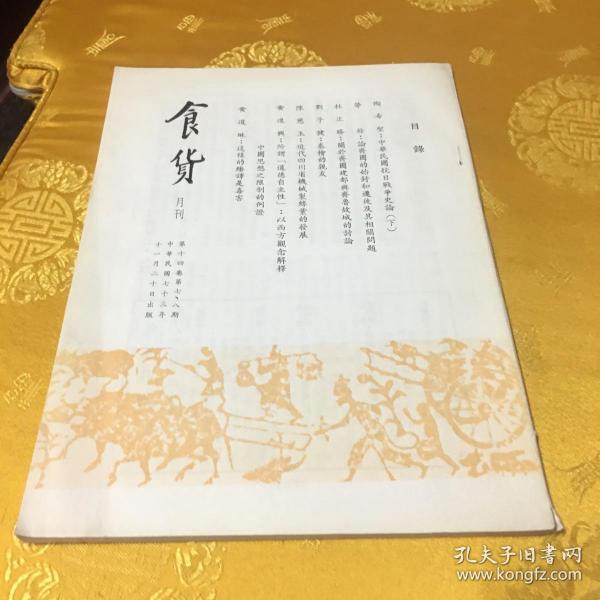 目錄
陶希聖：中華民國抗日戰爭史論（下）
勞榦：論齊國的始封和遷徙及其相關問題
杜正勝：關於齊國建都與齊魯故城的討論
劉子健：秦檜的親友
陳慈玉：近代四川省機械製絲業的發展
黃進興：所謂「道德自主性」：以西方觀念解釋
中國思想之限制的例證
黃道琳：這樣的繙譯是毒害
食貨
月刊
第十四卷第七、八期
中華民國七十三年
十一月二十日出版
孔夫子旧书网
www.kongfz.com